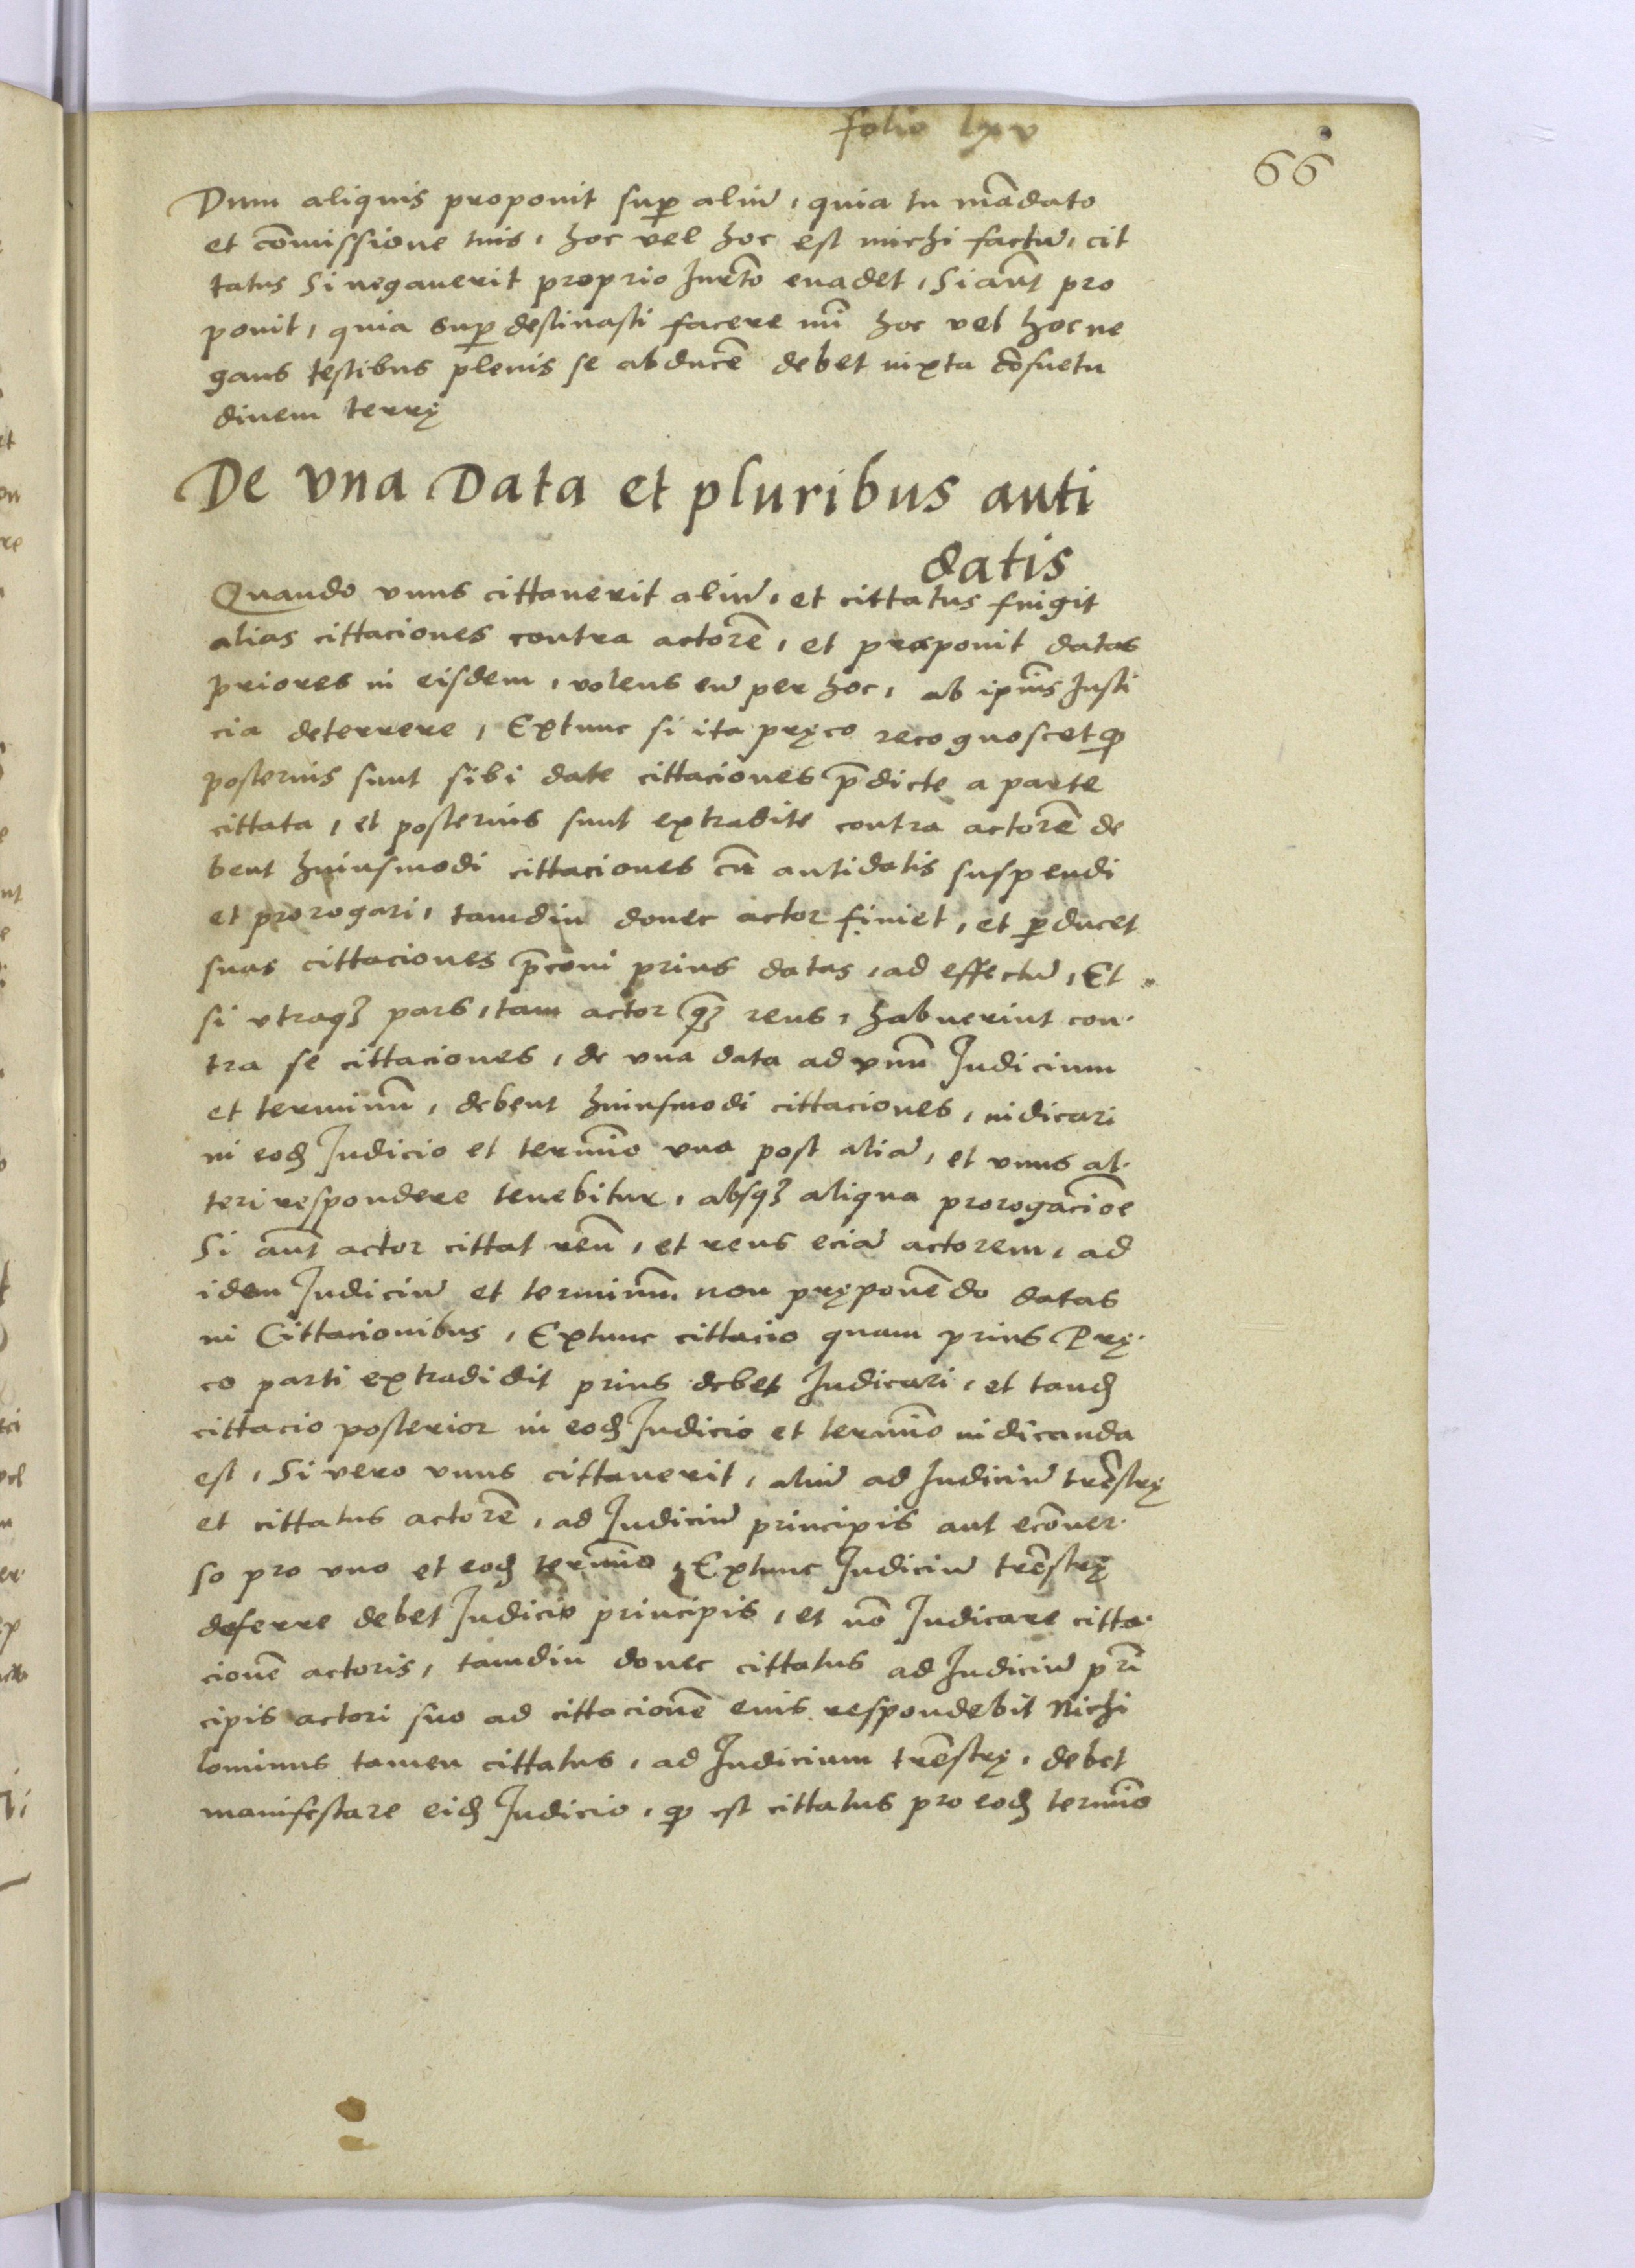 folio lxv
66
Dum aliquis proponit sup aliũ, quia tu mãdato
et cõmissione tuis, hoc vel hoc est michi factũ, cit
tatus Si negauerit proprio Iurẽto euadet, Si aũt pro
ponit, quia sup destinasti facere mi hoc vel hoc ne
gans testibus plenis se abducẽ debet iuxta cõsuetu
dinem terrę
De vna Data et pluribus anti
datis
Quando vnus cittauerit aliũ, et cittatus fingit
alias cittaciones contra actorẽ, et preponit datas
priores in eisdem, volens eũ per hoc, ab ipius Justi
cia deterrere, Extunc si ita pręco recognoscet ꝙ
posterius sunt sibi date cittaciones p̃dicte a parte
cittata, et posterius sunt extradite contra actorẽ de
bent huiusmodi cittaciones cũ antidatis suspendi
et prorogari, tamdiu donec actor finiet, et ꝑducet
suas cittaciones p̃coni prius datas, ad effectũ, Et
si vtraqꝫ pars, tam actor qꝫ reus, habuerint con
tra se cittaciones, de vna data ad vnũ Judicium
et terminũ, debent huiusmodi cittaciones, iudicari
in eodꝫ Judicio et termĩo vna post aliã, et vnus al
teri respondere tenebitur, absqꝫ aliqua prorogaciõe
Si aũt actor cittat reũ, et reus eciã actorem, ad
idem Judiciũ et terminum non pręponẽdo datas
in Cittacionibus, Extunc cittacio quam prius Prę
co parti extradidit prius debet Judicari, et tandꝫ
cittacio posterior in eodꝫ Judicio et termĩo iudicanda
est, Si vero vnus cittauerit, aliũ ad Judiciũ trẽstrę
et cittatus actorẽ, ad Judiciũ principis aut ecõuer
so pro vno et eodꝫ termĩo, Extunc Judiciũ trẽstrę
deferre debet Judicio principis, et nõ Judicare citta
cionẽ actoris, tamdiu donec cittatus ad Judiciũ prĩ
cipis actori suo ad cittacionẽ eius respondebit Nichi
lominus tamen cittatus, ad Judicium trẽstrę, debet
manifestare eidꝫ Judicio, ꝙ est cittatus pro eodꝫ termĩo